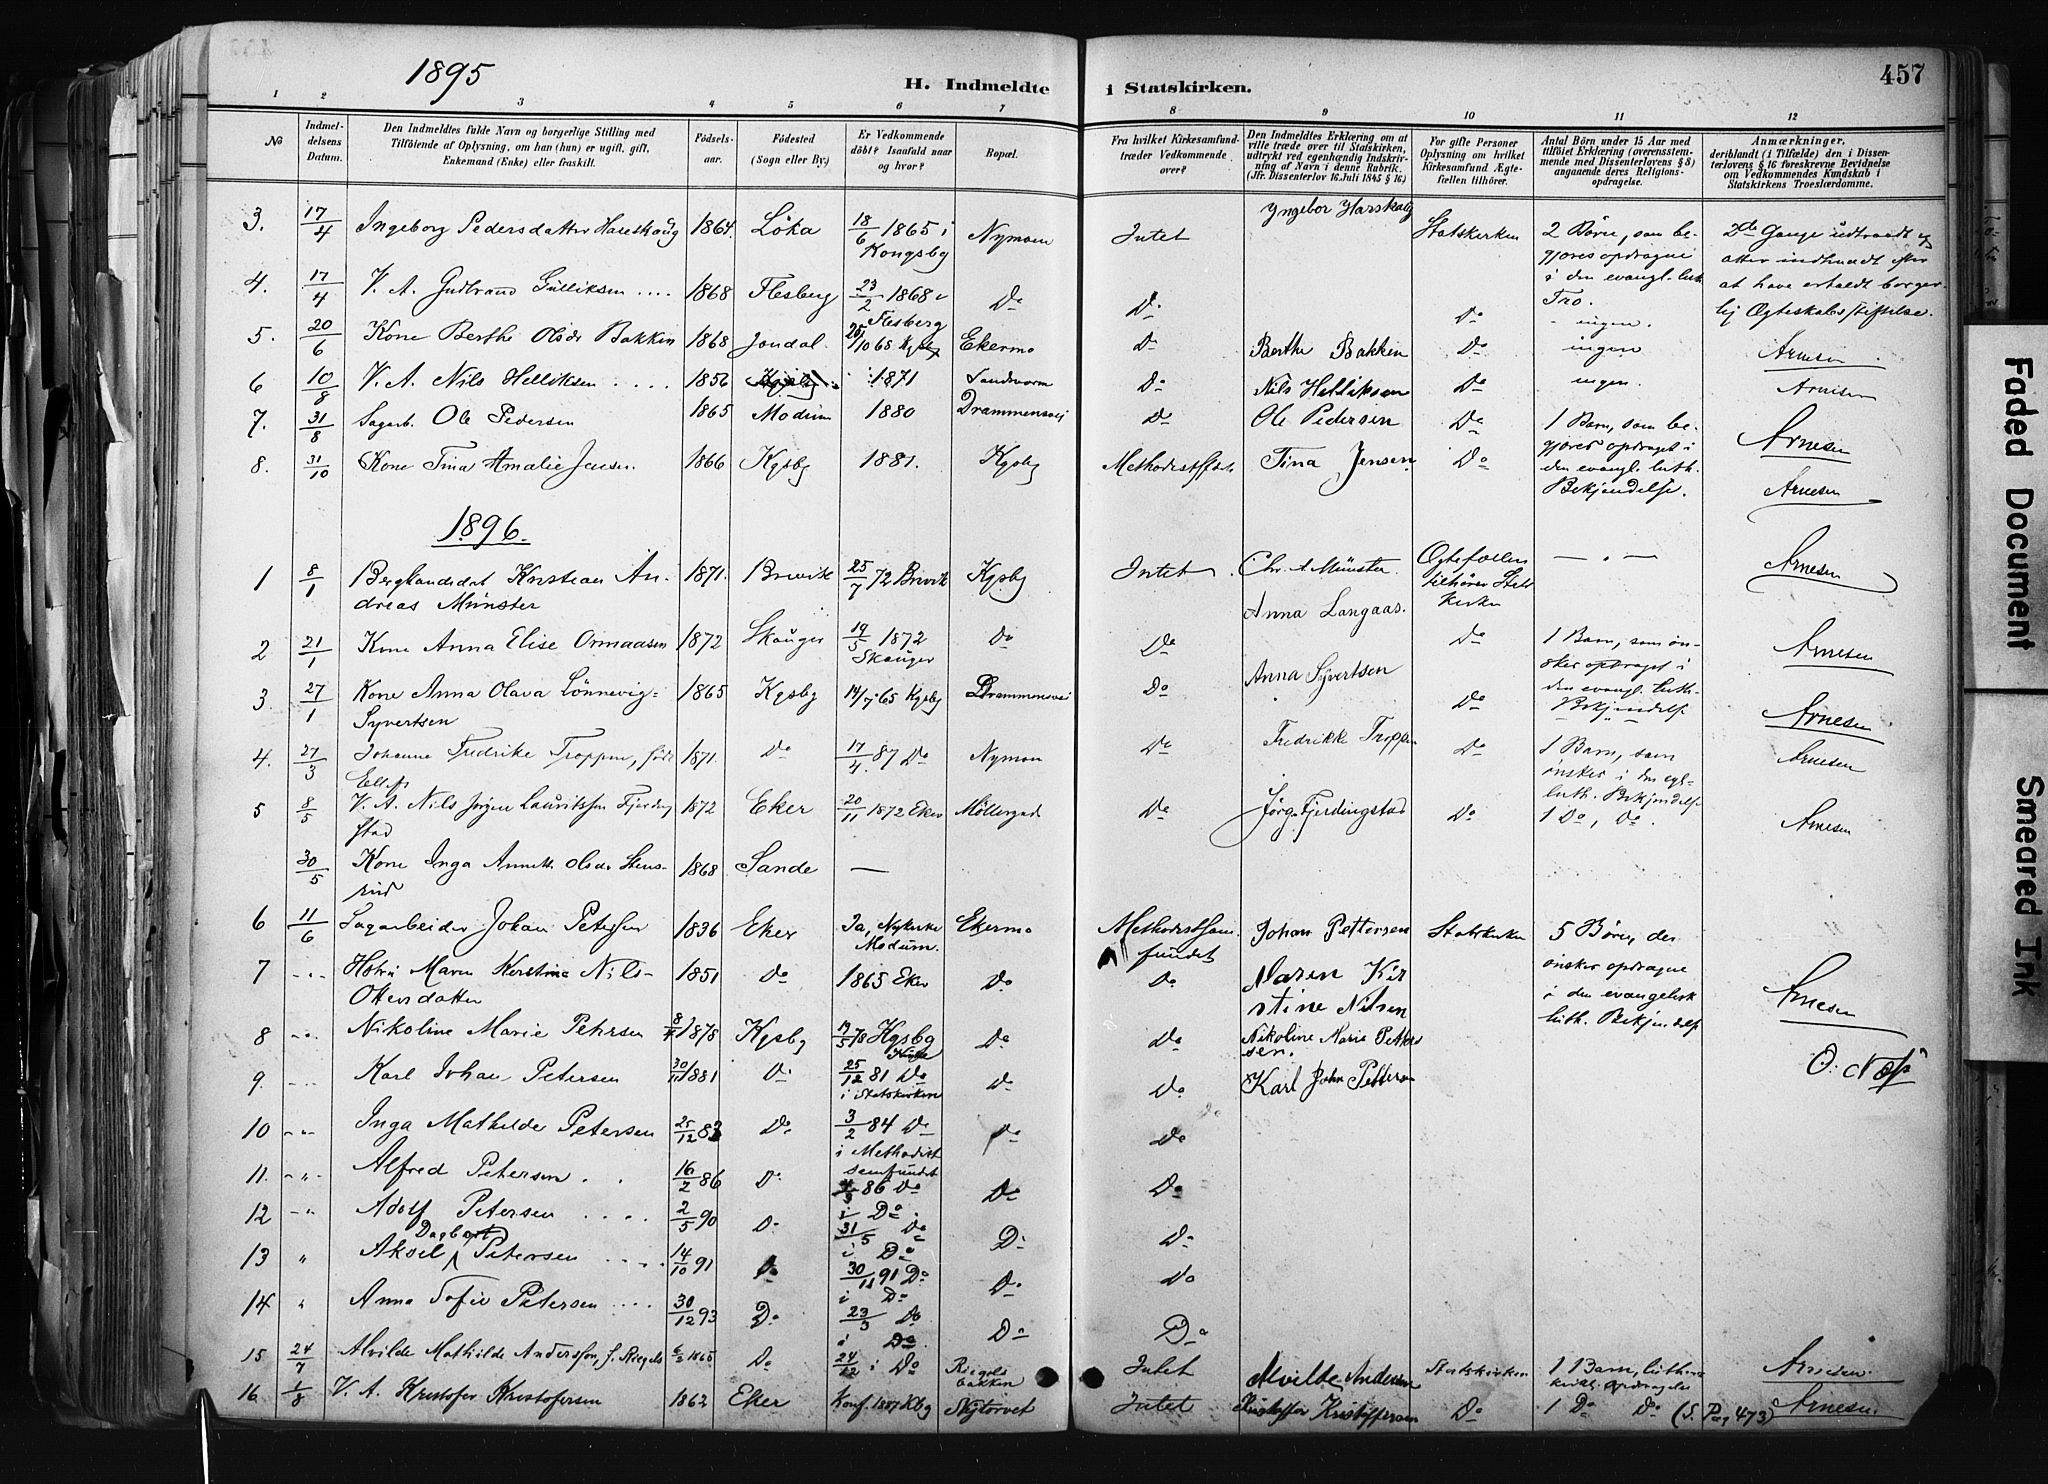 1895
H. Indmeldte i Statskirken.
457
1 2 3 4 5 6 7 8 9 10 11 12
No
Indmel-
delsens
Datum.
Den Indmeldtes fulde Navn og borgerlige Stilling med
Tilföiende af Oplysning, om han (hun) er ugift, gift,
Enkemand (Enke) eller fraskilt.
Födsels-
aar.
Födested
(Sogn eller By.)
Er Vedkommende
döbt? Isaafald naar
og hvor?
Bopæl.
Fra hvilket Kirkesamfund
træder Vedkommende
over?
Den Indmeldtes Erklæring om at
ville træde over til Statskirken,
udtrykt ved egenhændig Indskriv-
ning af Navn i denne Rubrik.
(Jfr. Dissenterlov 16 Juli 1845 § 16)
For gifte Personer
Oplysning om hvilket
Kirkesamfund Ægte-
fællen tilhörer.
Antal Börn under 15 Aar med
tilföiet Erklæring (overensstem-
mende med Dissenterlovens § 8)
angaaende deres Religions-
opdragelse.
Anmærkninger,
deriblandt (i Tilfælde) den i Dissen-
terlovens § 16 foreskrevne Bevidnelse
om Vedkommendes Kundskab i
Statskirkens Troeslærdomme.
3. 17/4 Ingeborg Pedersdatter Haseskoug 1864. Löka 18/6 1865 i Kongsbg Nymoen Intet Yngebor Harskoug Statskirken 2 Börn, som be-
gjøres opdragne
i den evangl. luth.
Tro.
2de Gange udtraadt og
atter indtraadt efter
at have erholdt borger-
lig Ægteskabsstiftelse.
4. 17/4 V. A. Gudbrand Gulliksen .... 1868 Flesberg 23/2 1868 i Flesberg Do Do Do ingen.
5. 20/6 Kone Berthe Olsdr Bakken 1868 Jondal 25/10 68 Kgsbg Ekermo Do Berthe Bakken Do ingen Arnesen
6 10/8 V. A. Nils Helliksen .... 1856 1871 Sandsværm Do Nils Helliksen Do ingen. Arnesen
7. 31/8 Sagarb. Ole Pedersen 1865 Modum 1880 Drammensvei Do Ole Pedersen Do 1 Barn, som be-
gjøres opdraget i
den evangl. luth.
Bekjendelse.
Arnesen
8. 31/10 Kone Tina Amalie Jensen. 1866 Kgsbg 1881. Kgsbg Methodistsfst. Tina Jensen. Do Arnesen
1896.
1 8/1 Bergkandidat Kristian An-
dreas Münster 1871. Brevik 25/7 72 Brevik Kgsbg Intet. Chr. A Münster. Ægtefællen
tilhörer Stats
kirken — . — Arnesen
2 21/1 Kone Anna Elise Ormaasen 1872 Skauger 19/5 1872 Skauger Do Do Anna Langaas. Do 1 Barn, som øn-
skes opdraget i
den evangl. luth.
Bekjendelse
Arnesen
3. 27/1 Kone Anna Olava Lønnevig-
Syvertsen 1865 Kgsbg 14/7 65 Kgsbg Drammensvei Do Anna Syvertsen Do Arnesen
4. 27/3 Johanne Fredrike Troppen, født
Ellefs 1871. Do 17/4. 87 Do Nymoen Do Fredrikke Troppen Do 1 Barn, som
ønskes i den evgl.
luth. Bekjendelse
Arnesen
5 8/5 V. A. Nils Jørgen Lauritssen Fjerding
stad 1872 Eker 20/11 1872 Eker Møllergad Do Jørg. Fjerdingstad Do 1 Do, Do. Arnesen
30/5 Kone Inga Annette Olsdr Stens-
rud 1868 Sande —
6 11/6 Sagarbeider Johan Petersen 1836 Eker Ja, Nykirke
Modum. Ekermo Methodistsam
fundet Johan Pettersen Statskirken 5 Börn, der
ønskes opdragne
i den evangelisk
luth. Bekjendelse
7 -"- Hstru Maren Kerstine Nils-
Ottersdatter 1851 Do 1865 Eker Do Do Maren Kir
stine Nilsen Arnesen
8 -"- Nikoline Marie Petersen 1878 Kgsbg 78 Kgsbg
Kirke Do Do Nikoline Marie Petter
sen.
9. -"- Karl Johan Petersen 30/11 1881 Do 25/12 81 Do
i Statskirken Do Do Karl John Pettersen O. Næss
10 -"- Inga Mathilde Petersen 25/12 83 Do 3/2 84 Do
i Methodist
samfundet Do Do
11. -"- Alfred Petersen . . 16/2 86 Do 86 Do
i Do. Do Do
12 -"- Adolf Petersen .... 2/5 90 Do 31/5 Do
i Do Do Do
13 " Aksel Dagbart Petersen .... 14/10 91 Do 30/11 91 Do
i Do Do Do
14 " Anna Sofie Petersen .... 30/12 93 Do 23/3 Do
i Do Do Do
15 24/7 Alvilde Mathilde Anderssen, f. Riegels 6/2 1865 Do 24/12 i Do Riegels
bakken Intet Alvilde Andersen Statskirken 1 Barn, luthersk
opdragelse Arnesen.
16. 1/8 V. A. Kristofer Kristofersen 1862 Eker Konf. 1887 Kbg Nytorvet Intet Kristoffer Kristoffersen Do 1 Do Do (S. Pag 473) Arnesen
Faded Document
Smeared Ink